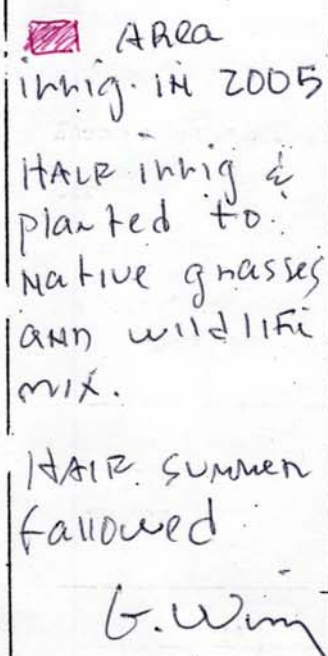 Area
irrig. in 2005
Half irrig &
planted to
native grasses
and wildlife
mix.
Half summer
fallowed
G. Wim